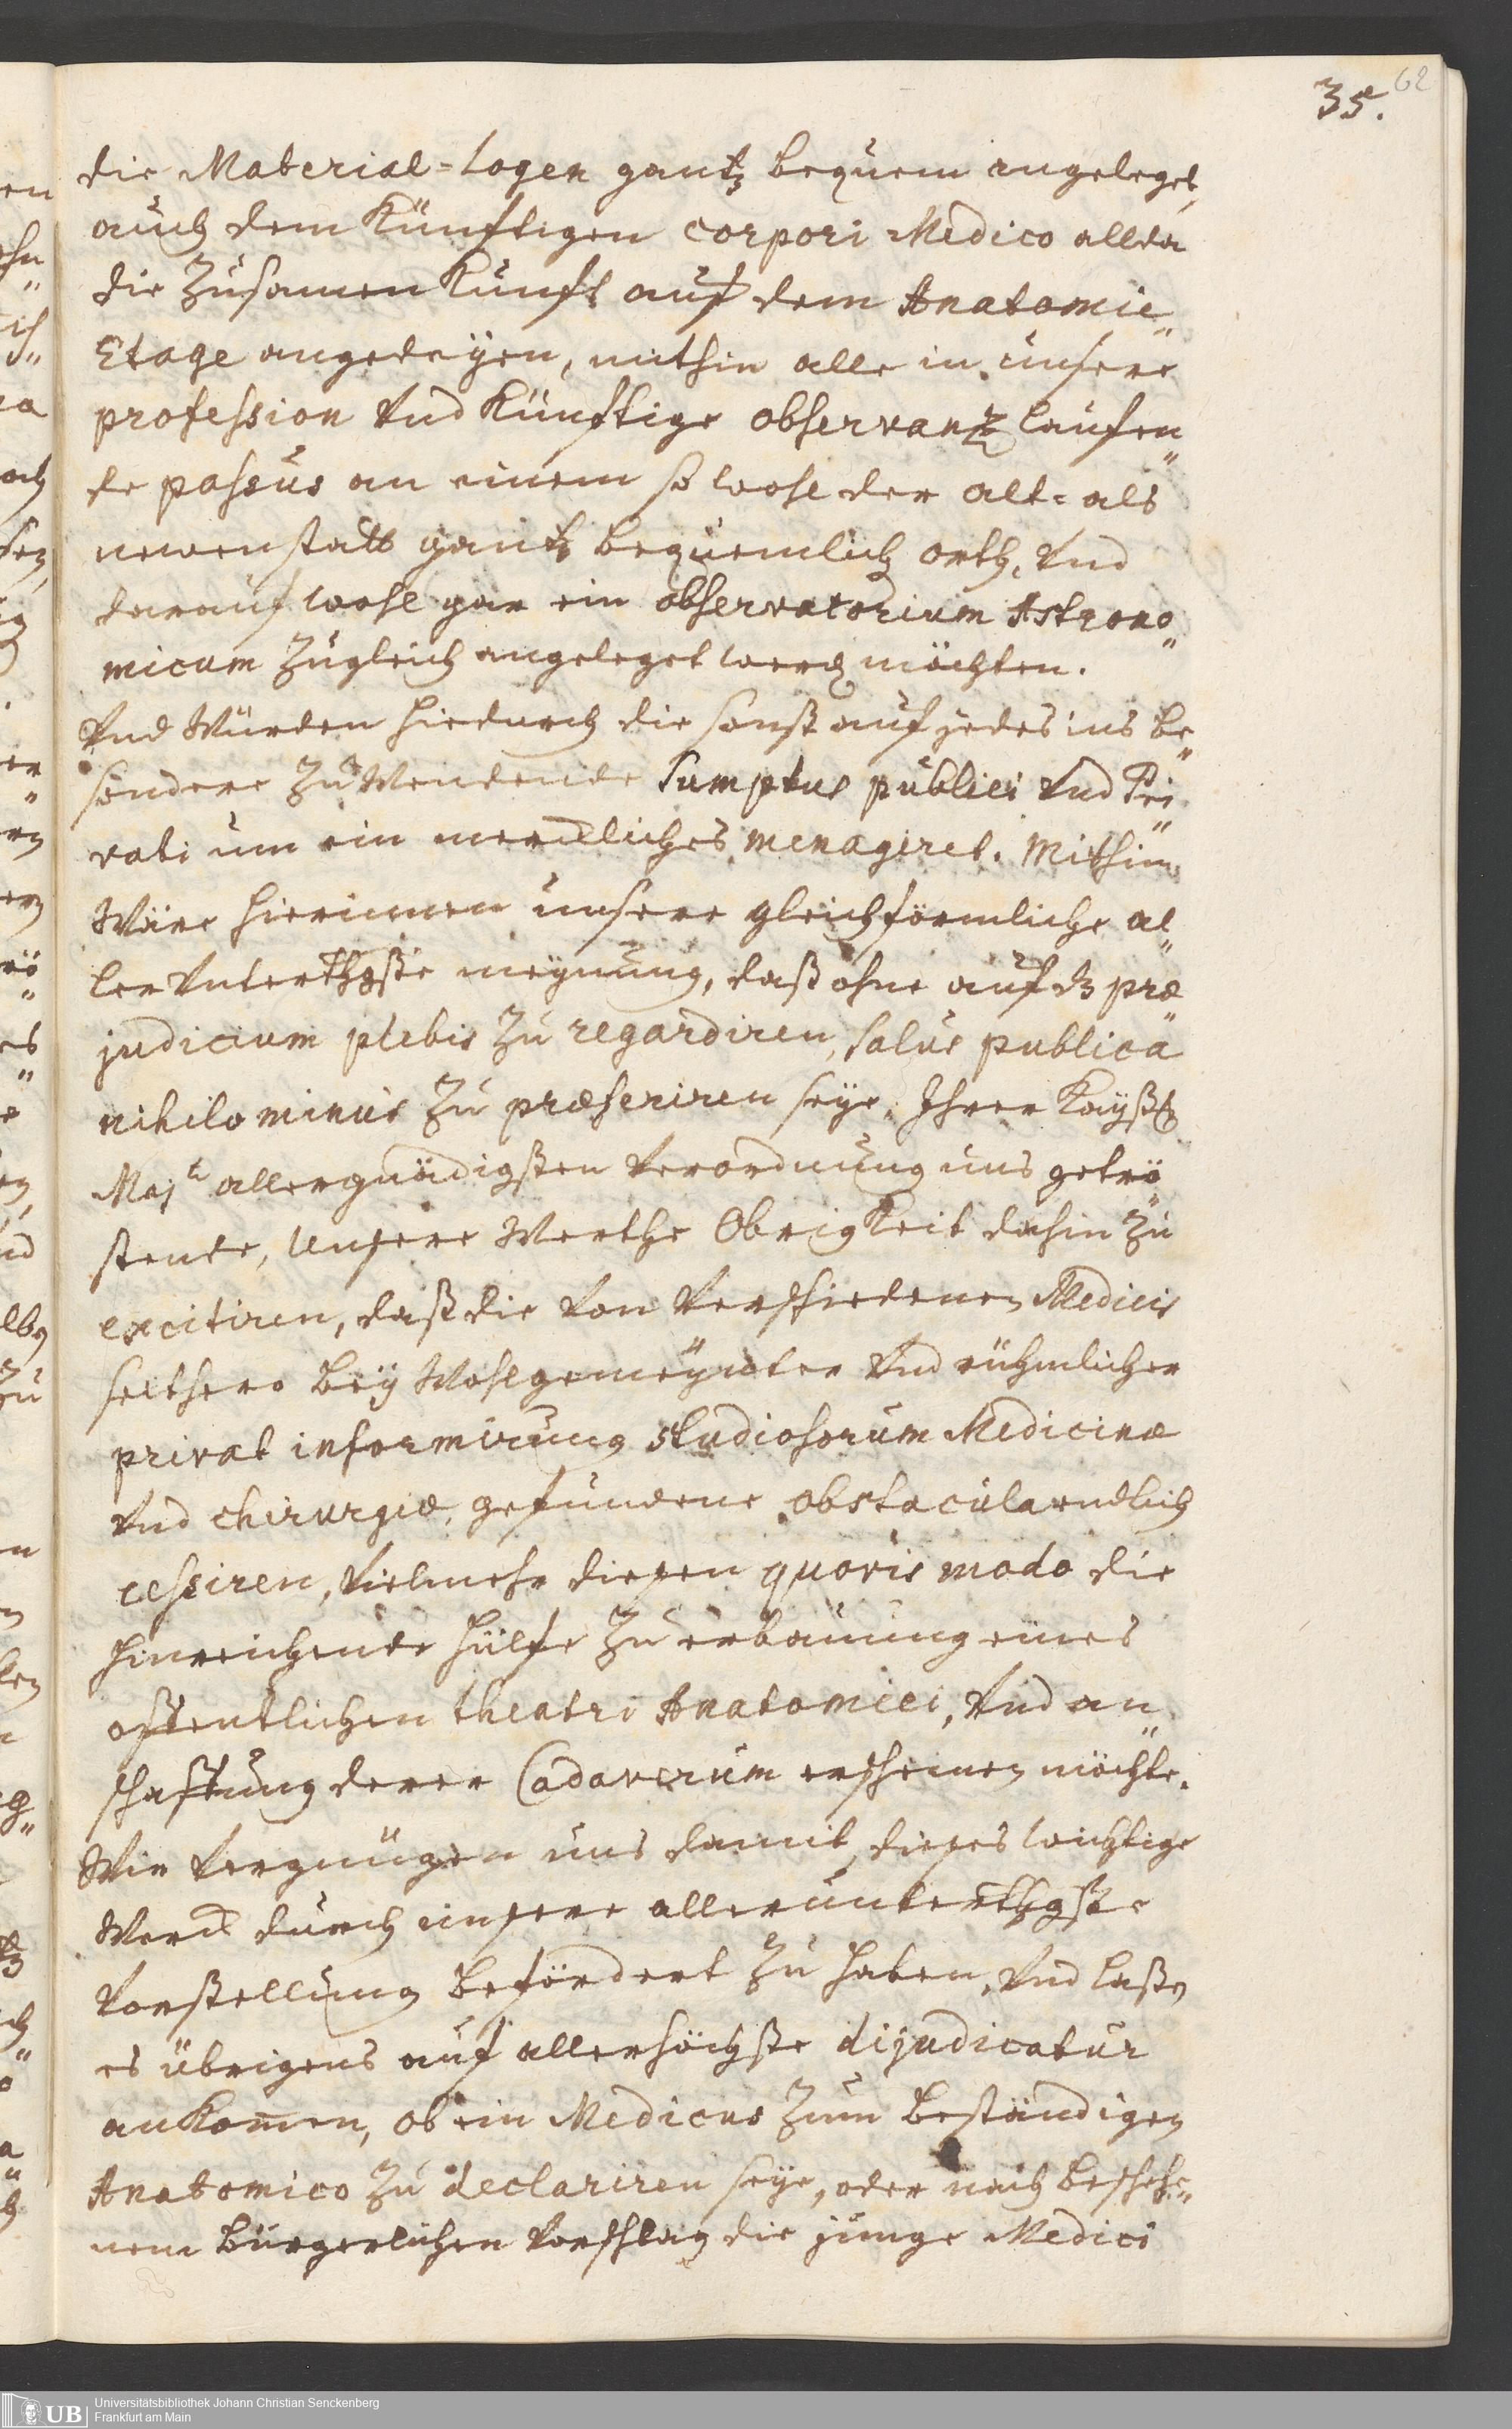 35.
62
die Material-Logen gantz bequem angeleget,
auch dem Künftigen corpori Medico allda
die ZusamenKunft auf dem Anatomie„
Etage angedeyen, mithin alle in unsere
profession und Künftige observantz laufen„
de passus an einem so wohl der alt- als
newenstatt gantz bequemlich orth, und
darauf wohl gar ein observatorium Astrono„
micum Zugleich angeleget werden möchten.
Und Würden hiedurch die sonst auf jedes ins be„
sondere Zu Wendende Sumptus publici und Pri„
vati um ein merckliches menagiret. Mithin
Wäre hierinnen unsere gleichförmliche al„
ler Unterthgste meynung, daß ohne auf dz præ„
judicium plebis Zu regardiren, salus publica
nihilominus Zu præferiren seye. Ihrer Kayßl
Majt allergnädigsten Verordnung uns getrö„
stende, Unsere Werthe Obrigkeit dahin Zu
excitiren, daß die von Verschiedenen Medicis
seithero bey Wohlgemeynter und rühmlicher
privat informirung studiosorum Medicinæ
und chirurgiæ gefundene obstacula endlich
cessiren, Vielmehr diesen quovis modo die
hinreichende hülfe Zu erbauung eines
offentlichen theatri Anatomici, und an„
schaffung derer Cadaverum erscheinen möchte.
Wir Vergnügen uns damit, dieses wichtige
Werck durch unsere allerunterthgste
Vorstellung befördert Zu haben, und laßen
es übrigens auf allerhöchste dijudicatur
ankomen, ob ein Medicus Zum beständigen
Anatomico Zu declariren seye, oder nach beschehe„
nem bürgerlichen Vorschlag die junge Medici
UB
Universitätsbibliothek Johann Christian Senckenberg
Frankfurt am Main